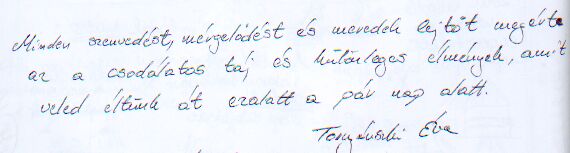 Minden szenvedést, mérgelődést és meredek lejtőt megérte
az a csodálatos táj és különleges élmények, amit
veled éltünk át ezalatt a pár nap alatt.
Éva